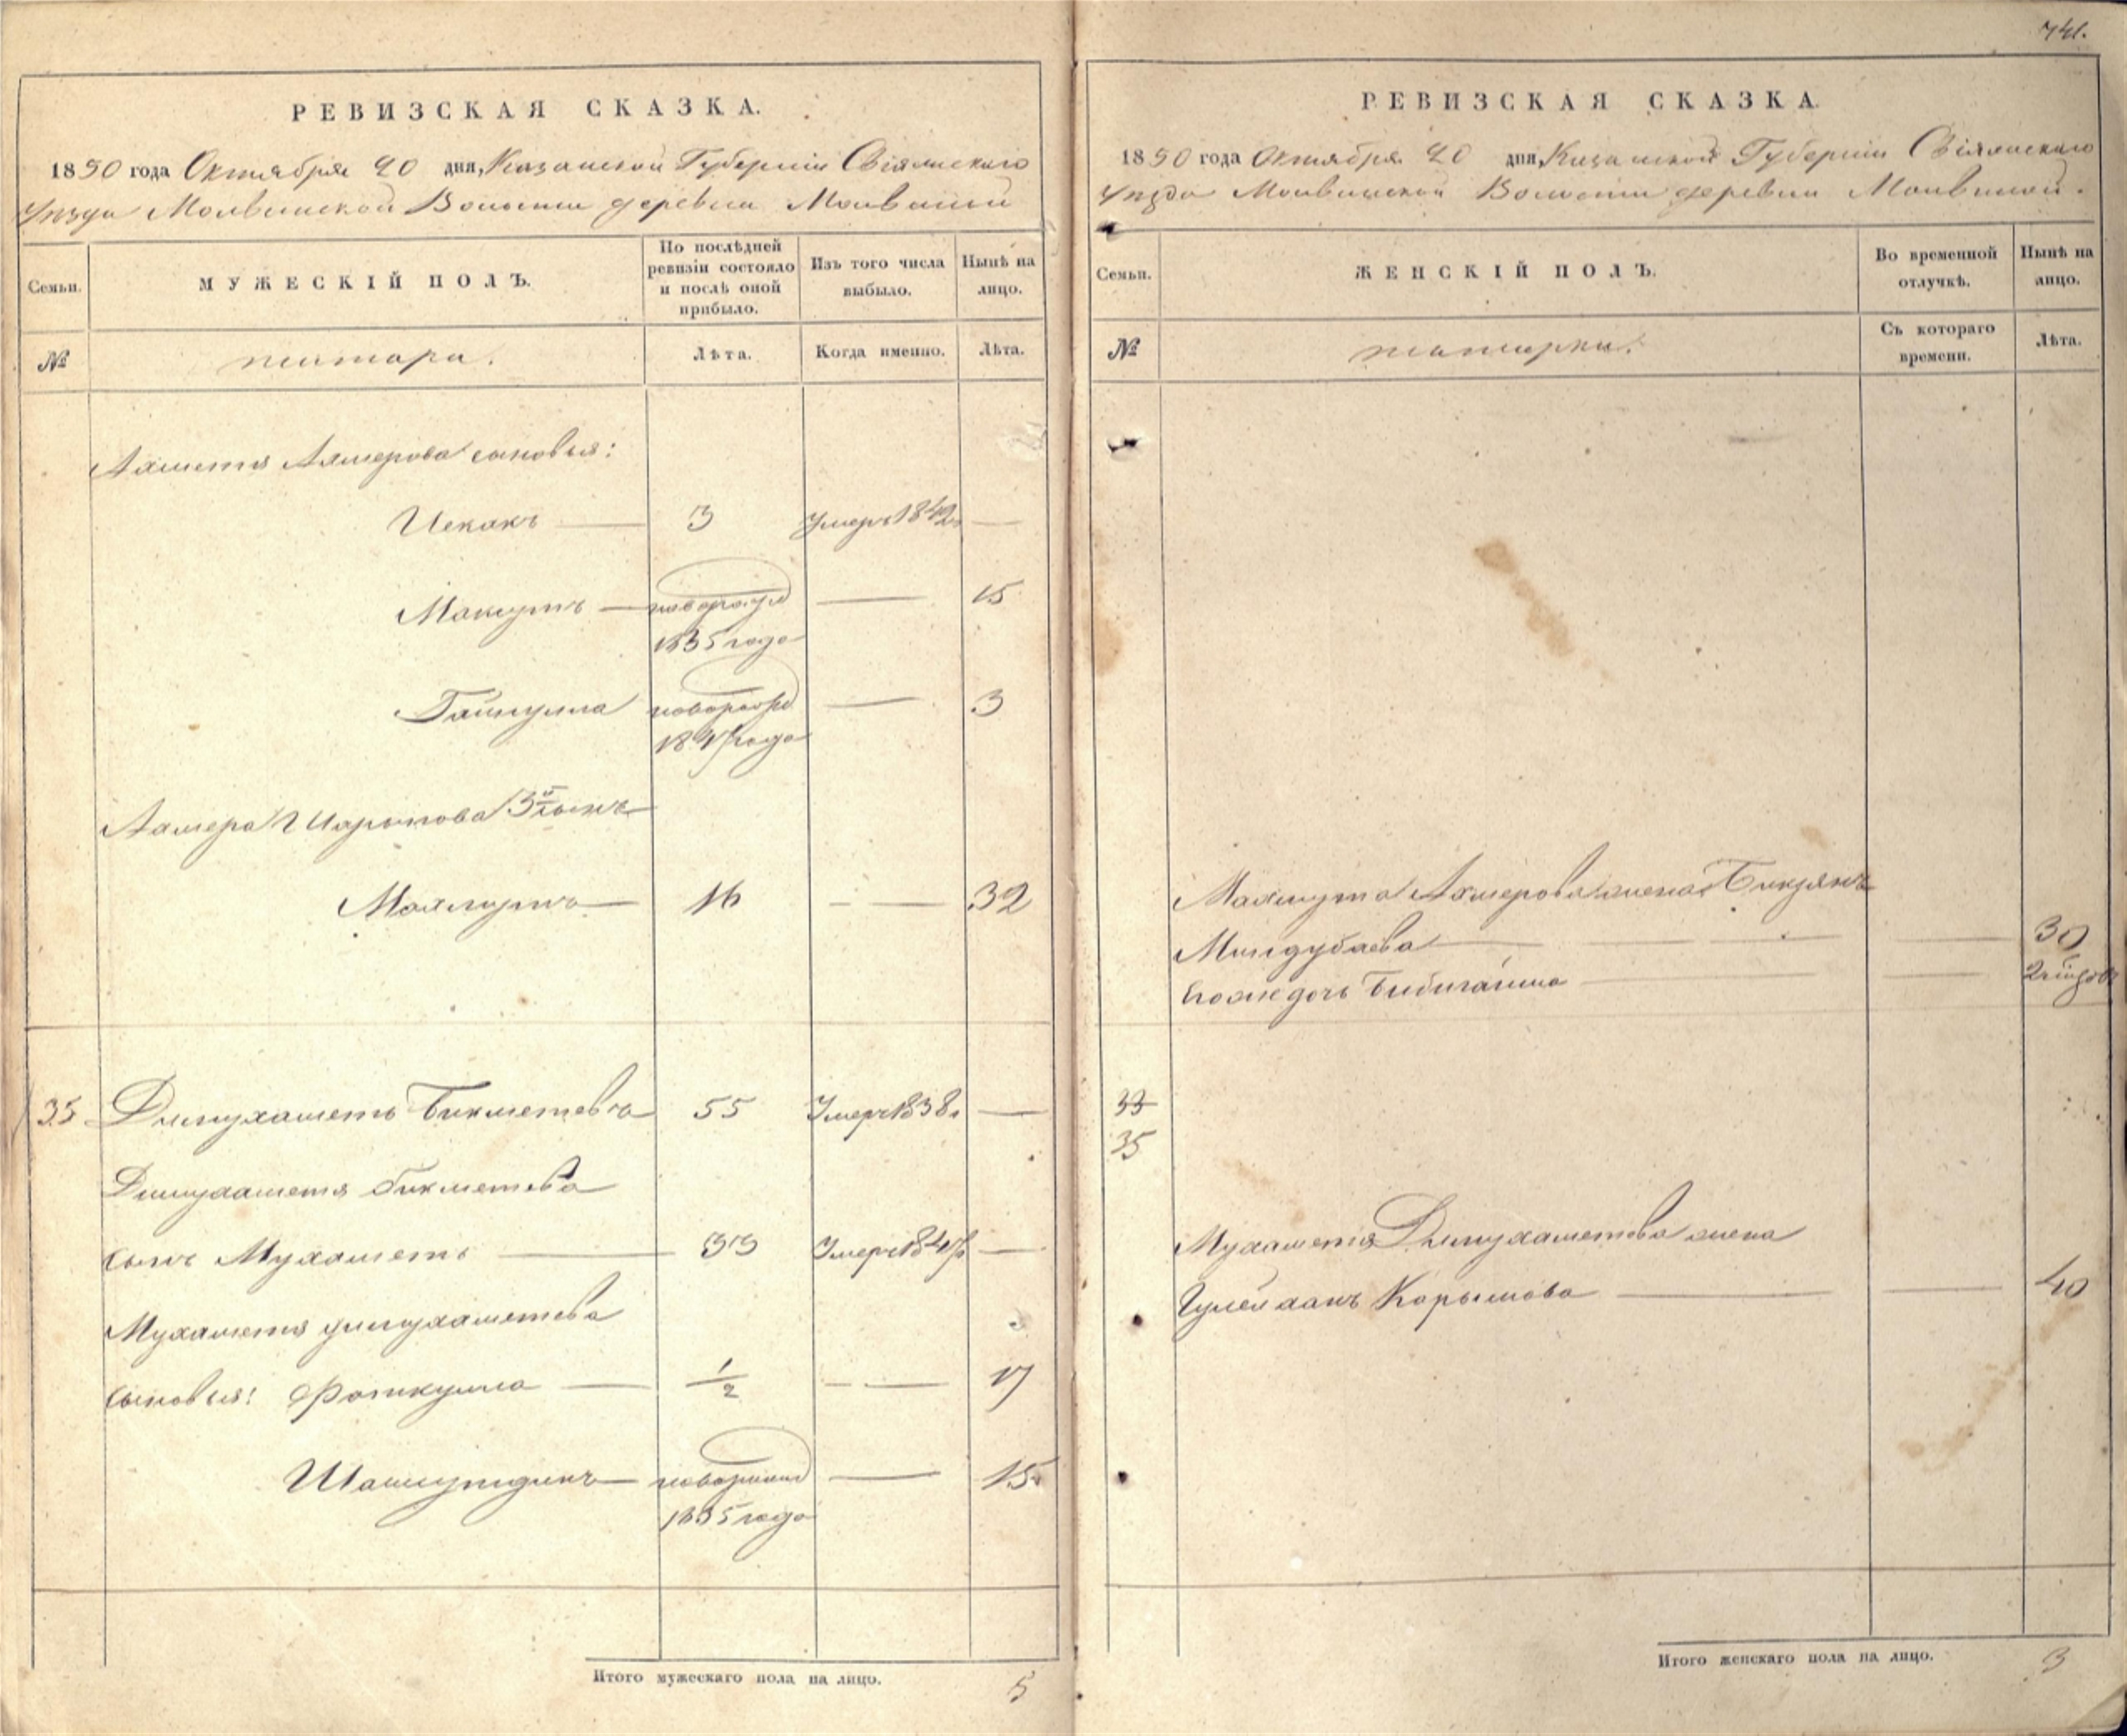 741.
РЕВИЗСКАЯ СКАЗКА.
1850 года Октября 20 дня, Казанской Губерніи Свіяжскаго
Уѣзда Молвинской Волости деревни Молвиной
Семьи.
МУЖЕСКІЙ ПОЛЪ.
По послѣдней
ревизіи состояло
и послѣ оной
прибыло.
Изъ того числа
выбыло.
Нынѣ на
лицо.
№
татара.
Лѣта.
Когда именно.
Лѣта.
Ахметя Ахмерова сыновья:
3 Умеръ 1842
Максутъ — новорожд — 15
1835 года
новорожд — 3
1847 года
Ахмера Шарыпова 3й сынъ
Махмутъ — 16 — — 32
35 Динухаметь Бикметевъ 55 Умеръ 1838 —
Динухаметя Бикметева
сынъ Мухаметь — 33 Умеръ 1847 —
Мухаметя динухаметева
сыновья: Фаткулла — 1/2 — — 17
Шамшутдинъ — новорожд — 15
1835 года
Итого мужескаго пола на лицо. 5
РЕВИЗСКАЯ СКАЗКА.
1850 года Октября 20 дня, Казанской Губерніи Свіяжскаго
Уѣзда Молвинской Волости деревни Молвиной.
Семьи.
ЖЕНСКІЙ ПОЛЪ.
Во временной
отлучкѣ.
Нынѣ на
лицо.
№
татарки.
Съ котораго
времени.
Лѣта.
Махмута Ахмерова жена
Миндубаева — — — — 30
Его же дочь — —
33
35
Мухаметя Динухаметева жена
Карымова — — 40
Итого женскаго пола на лицо. 3